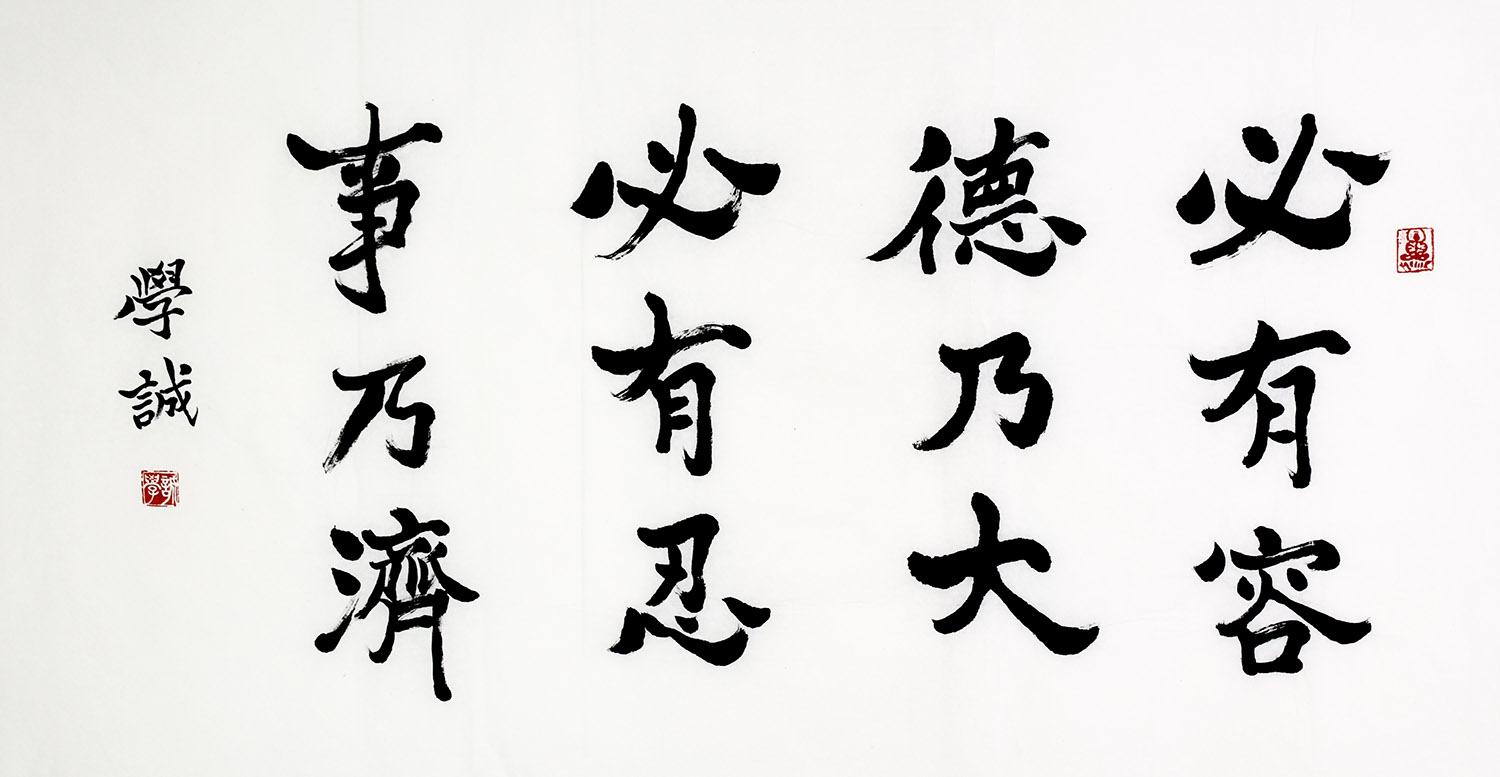 必有容
德乃大
必有忍
事乃濟
學誠
學誠